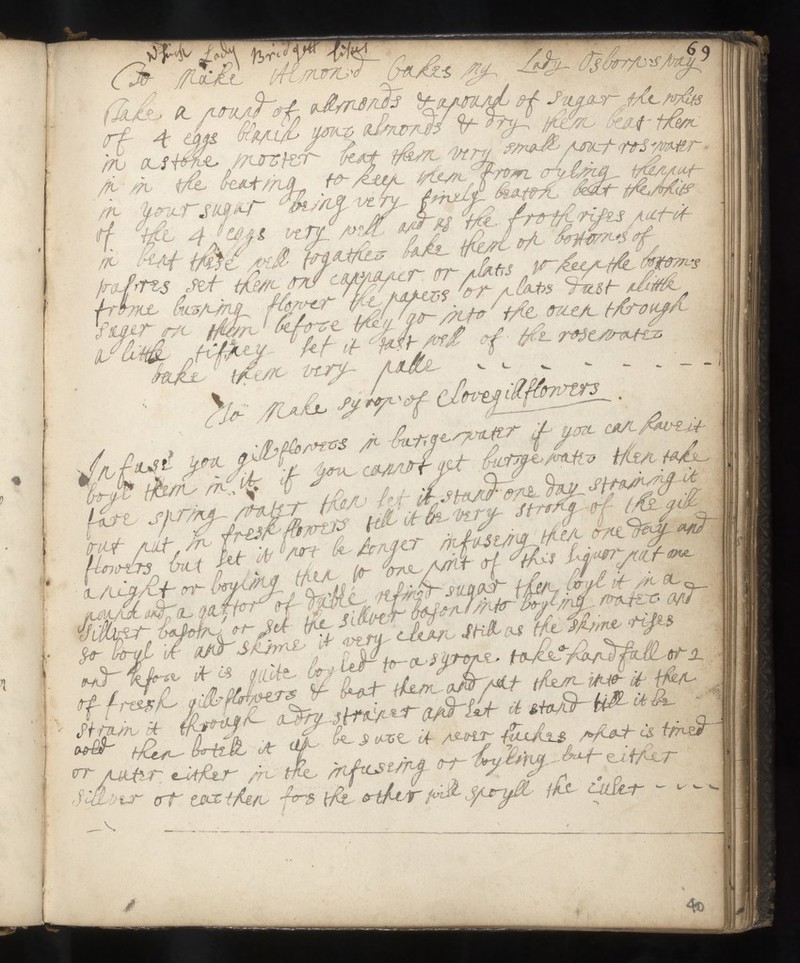 69
which Lady Bridgett likes
To Make Almond Cakes my Lady Osborns way
Take a pound of allmonds & a pound of sugar the whits
of 4 eggs blanch your almonds & dry them beat them
in a stone morter beat them very small pour rosewater
in in the beating to keep them from oyling then put
in your sugar being very finely beaton beat the whits
of the 4 eggs very well and as the froth rises put it
in beat these well togather bake them on bottoms of
wafires set them on cappaper or plats to keep the bottoms
frome burning flower the papers or plats dust a little
suger on them before they go into the ouen through
a little tifney let it tast well of the rosewater
bake them very palle
To Make Syrop of Clovegillflowers
Infuse you gillflowers in burrge water if you can have it
boyl them in it if you cannot get burrge water then take
fare spring water then let it stand one day straining it
out put in fresh flowers till it be very strong of the gill
flowers but let it not be longer infuseing then one day and
a night or boyling then to one pint of this liquor put one
pound and a qarter of duble refined sugar then boyl it in a
sillver bason or set the sillver bason into boyling water and
so boyl it and skime it very clean still as the skime rises
and before it is quite boyled to a syrope take a handfull or 2
of freesh gillflowers & beat them and put them into it then
stram it through a dry strainer and let it stand till it be
cold then botell it up be sure it never tuches what is tined
or puter either in the infuseing or boyling but either
sillver or earthen for the other will spoyll the culer
40